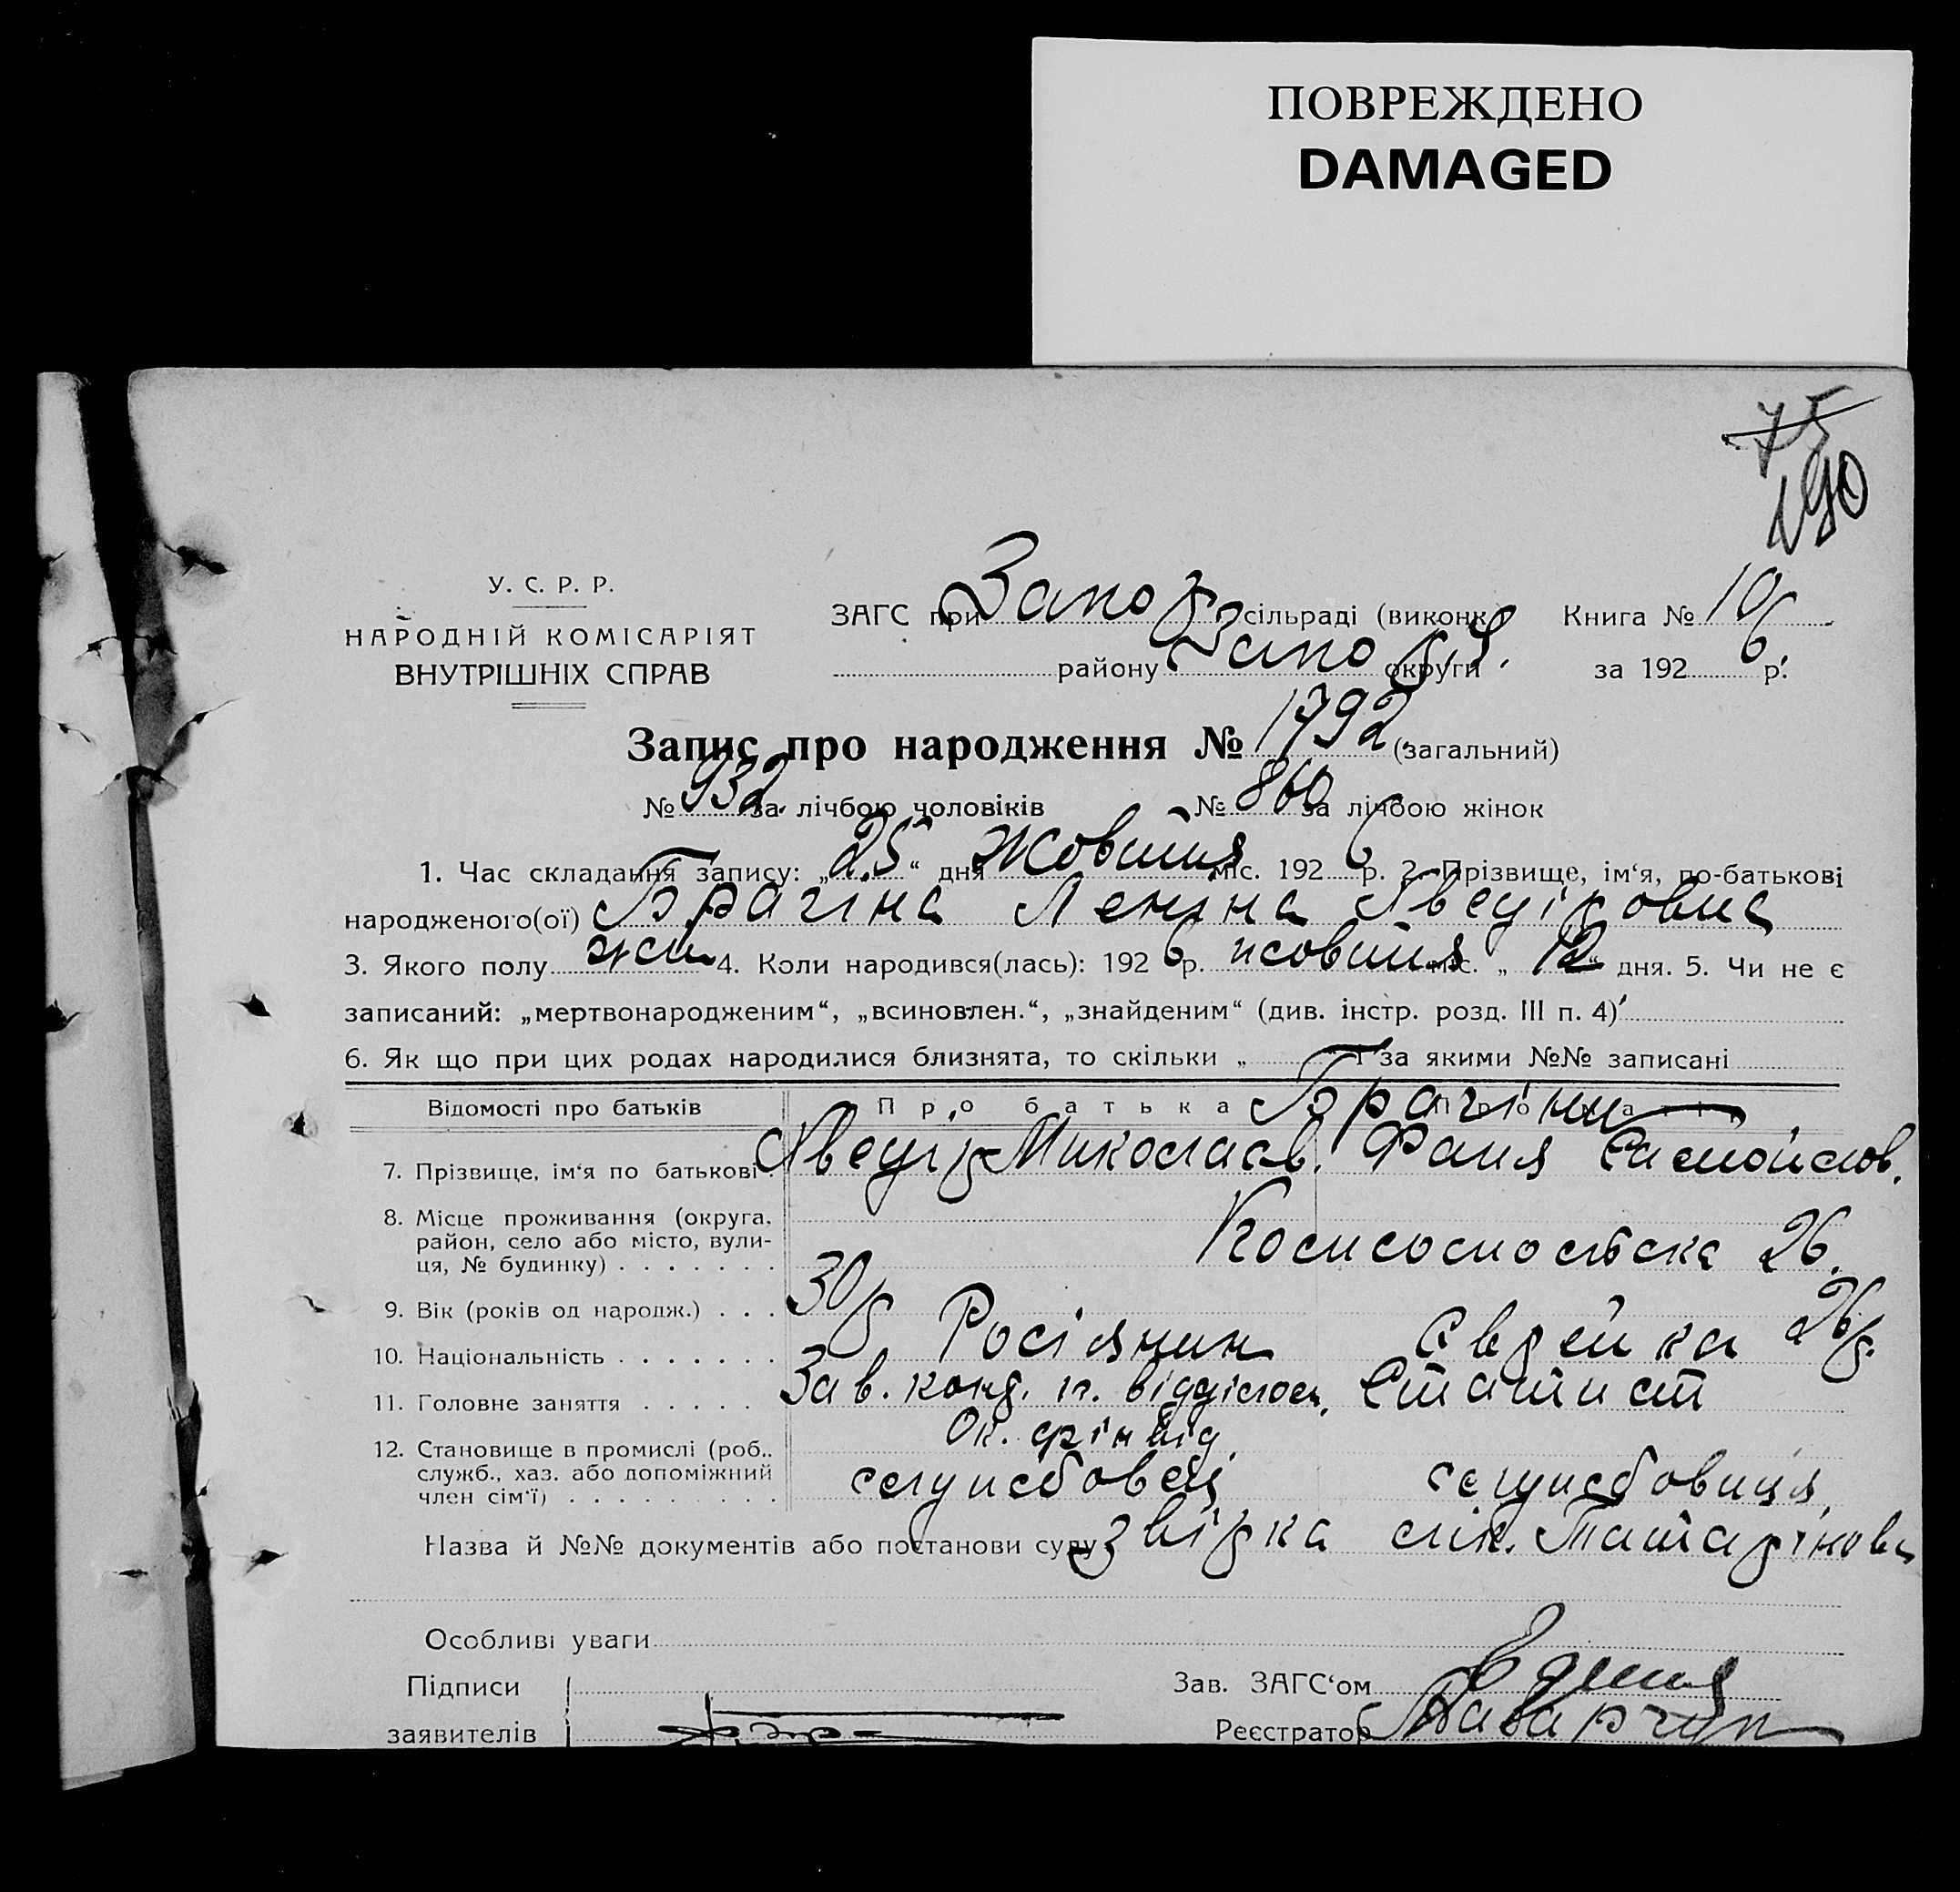 ПОВРЕЖДЕНО
DAMAGED
75
190
У. С. Р. Р.
НАРОДНІЙ КОМІСАРІЯТ
ВНУТРІШНІХ СПРАВ
ЗАГС при Запоріз сільраді (виконк Книга № 10
району Запоріз. округи за 1926 р.
Запис про народження № 1792 (загальний)
№ 932 за лічбою чоловіків № 860 за лічбою жінок
1. Час складання запису: „25“ дня Жовтня міс. 1926 р. 2. Прізвище, ім‘я, по-батькові
народженого(ої) Брагіна Леніна Авеніровна
3. Якого полу жін 4. Коли народився(лась): 1926 р. жовтня міс. „12“ дня. 5. Чи не є
записаний: „мертвонародженим“, „всиновлен.“, „знайденим“ (див. інстр. розд. III п. 4)
6. Як що при цих родах народилися близнята, то скільки „ “ і за якими №№ записані
Відомості про батьків Про батька Брагіни
7. Прізвище, ім‘я по батькові Авенір Миколаєв. Фаня Самойлов.
8. Місце проживання (округа,
район, село або місто, вули-
ця, № будинку) Комсомольска 26.
9. Вік (років од народж.) 30 р 26 р.
10. Національність Росіянин Єврейка
11. Головне заняття Зав. відділом, Статист
Ок. фінвід.
12. Становище в промислі (роб.,
служб., хаз. або допоміжний
член сім‘ї) службовец службовиця
Назва й №№ документів або постанови суду звірка лік. Татарінови
Особливі уваги
Підписи Зав. ЗАГС‘ом
заявителів Реєстратор